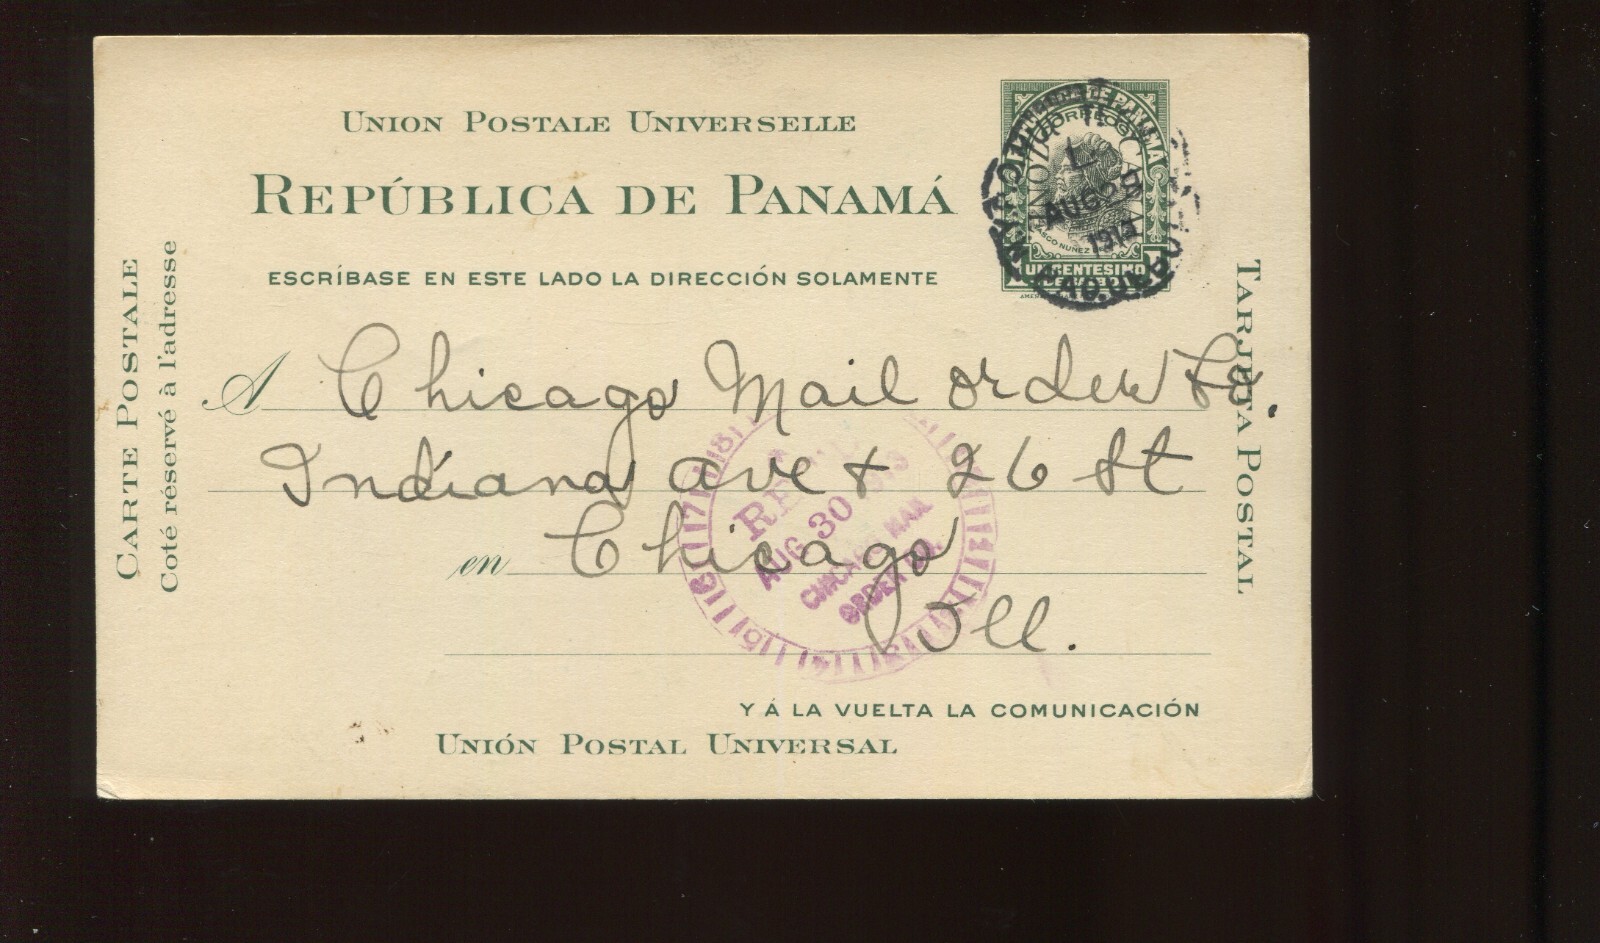 UNION POSTALE UNIVERSELLE
REPÚBLICA DE PANAMÁ
ESCRÍBASE EN ESTE LADO LA DIRECCIÓN SOLAMENTE
CARTE POSTALE
Coté réservé à l'adresse
TARJETA POSTAL
DE PANAMA
CORREOS
AUG
1913
UN CENTESIMO
A Chicago Mail order Co.
Indiana ave + 26 St
en Chicago
Ill.
AUG 30
CHICAGO MAIL
ORDER CO.
Y Á LA VUELTA LA COMUNICACIÓN
UNIÓN POSTAL UNIVERSAL